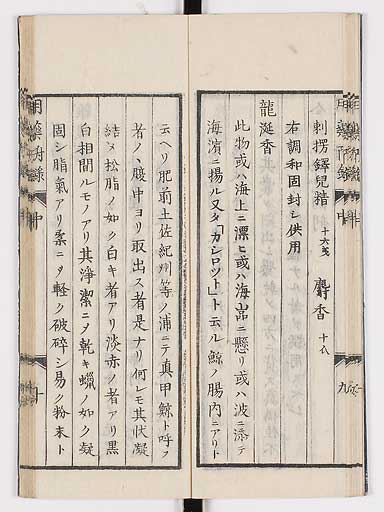 刺楞鐸兒精 十六戔 麝香 十八
右調和固封シ供用
龍涎香
此物或ハ海上ニ漂ヒ或ハ海嵓ニ懸リ或ハ波ニ添テ
海濱ニ揚ル又タ「カシロツト」ト云ル鯨ノ腸内ニアリト
云ヘリ肥前土佐紀州等ノ浦ニテ真甲鯨ト呼フ
者ノ腹中ヨリ取出ス者是ナリ何レモ其状凝
結メ松脂ノ如ク白キ者アリ淡赤ノ者アリ黒
白相間ルモノアリ其浄潔ニメ乾キ蠟ノ如ク凝
固シ脂氣アリ柔ニメ軽ク破碎シ易ク粉末ト